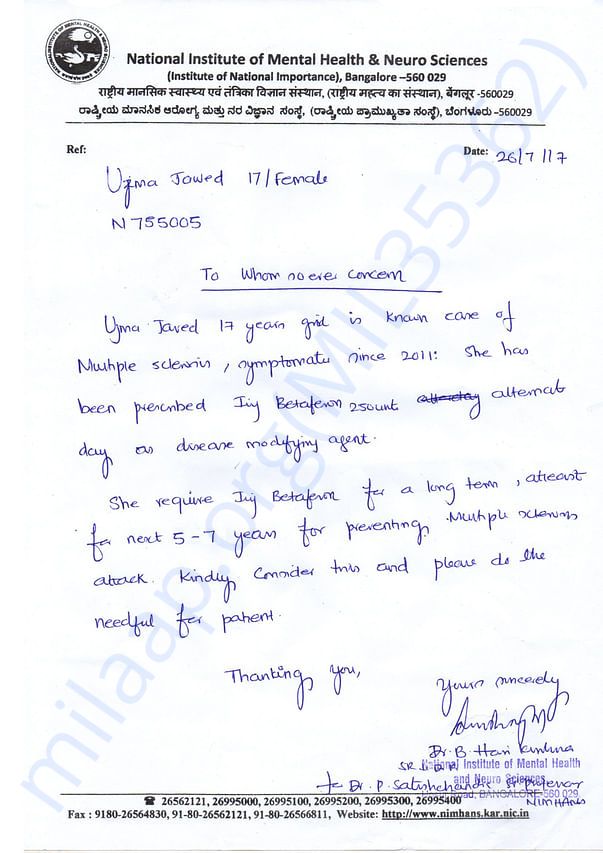 National Institute of Mental Health & Neuro Sciences
(Institute of National Importance), Bangalore –560 029
राष्ट्रीय मानसिक स्वास्थ्य एवं तंत्रिका विज्ञान संस्थान, (राष्ट्रीय महत्व का संस्थान), बेंगलूर -560029
ರಾಷ್ಟ್ರೀಯ ಮಾನಸಿಕ ಆರೋಗ್ಯ ಮತ್ತು ನರ ವಿಜ್ಞಾನ ಸಂಸ್ಥೆ, (ರಾಷ್ಟ್ರೀಯ ಪ್ರಾಮುಖ್ಯತಾ ಸಂಸ್ಥೆ), ಬೆಂಗಳೂರು -560029
Ref:
Date: 26/7/17
Ujma Jawed 17/Female
N755005
To Whom so ever concern
Ujma Javed 17 years girl is known case of
Multiple sclerosis, symptomatic since 2011. She has
been prescribed Inj Betaferon 250unit alternate
day as disease modifying agent.
She require Inj Betaferon for a long term, atleast
for next 5-7 years for preventing Multiple sclerosis
attack. Kindly Consider this and please do the
needful for patient.
Thanking you,
Yours sincerely
Dr. B. Hari Krishna
National Institute of Mental Health
and Neuro Sciences
to Dr. P. Satishchandra Sr Professor
Road, BANGALORE-560 029
NIMHANS
☎ 26562121, 26995000, 26995100, 26995200, 26995300, 26995400
Fax : 9180-26564830, 91-80-26562121, 91-80-26566811, Website: http://www.nimhans.kar.nic.in
milaap.org(MIL35362)